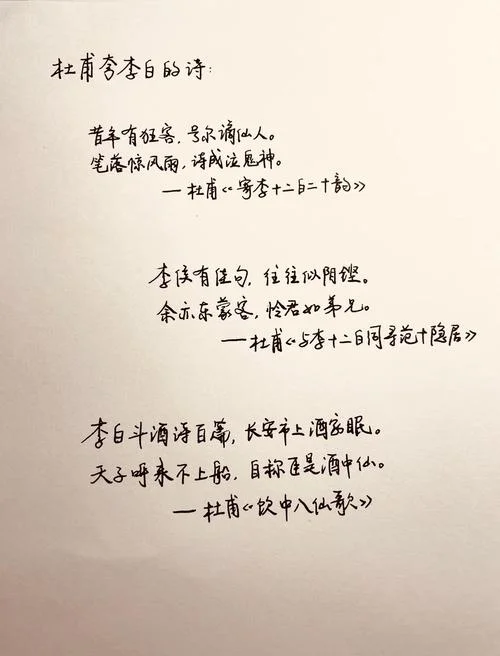 杜甫夸李白的诗:
昔年有狂客,号尔谪仙人。
笔落惊风雨,诗成泣鬼神。
—杜甫《寄李十二白二十韵》
李侯有佳句,往往似阴铿。
余亦东蒙客,怜君如弟兄。
—杜甫《与李十二白同寻范十隐居》
李白斗酒诗百篇,长安市上酒家眠。
天子呼来不上船,自称臣是酒中仙。
—杜甫《饮中八仙歌》